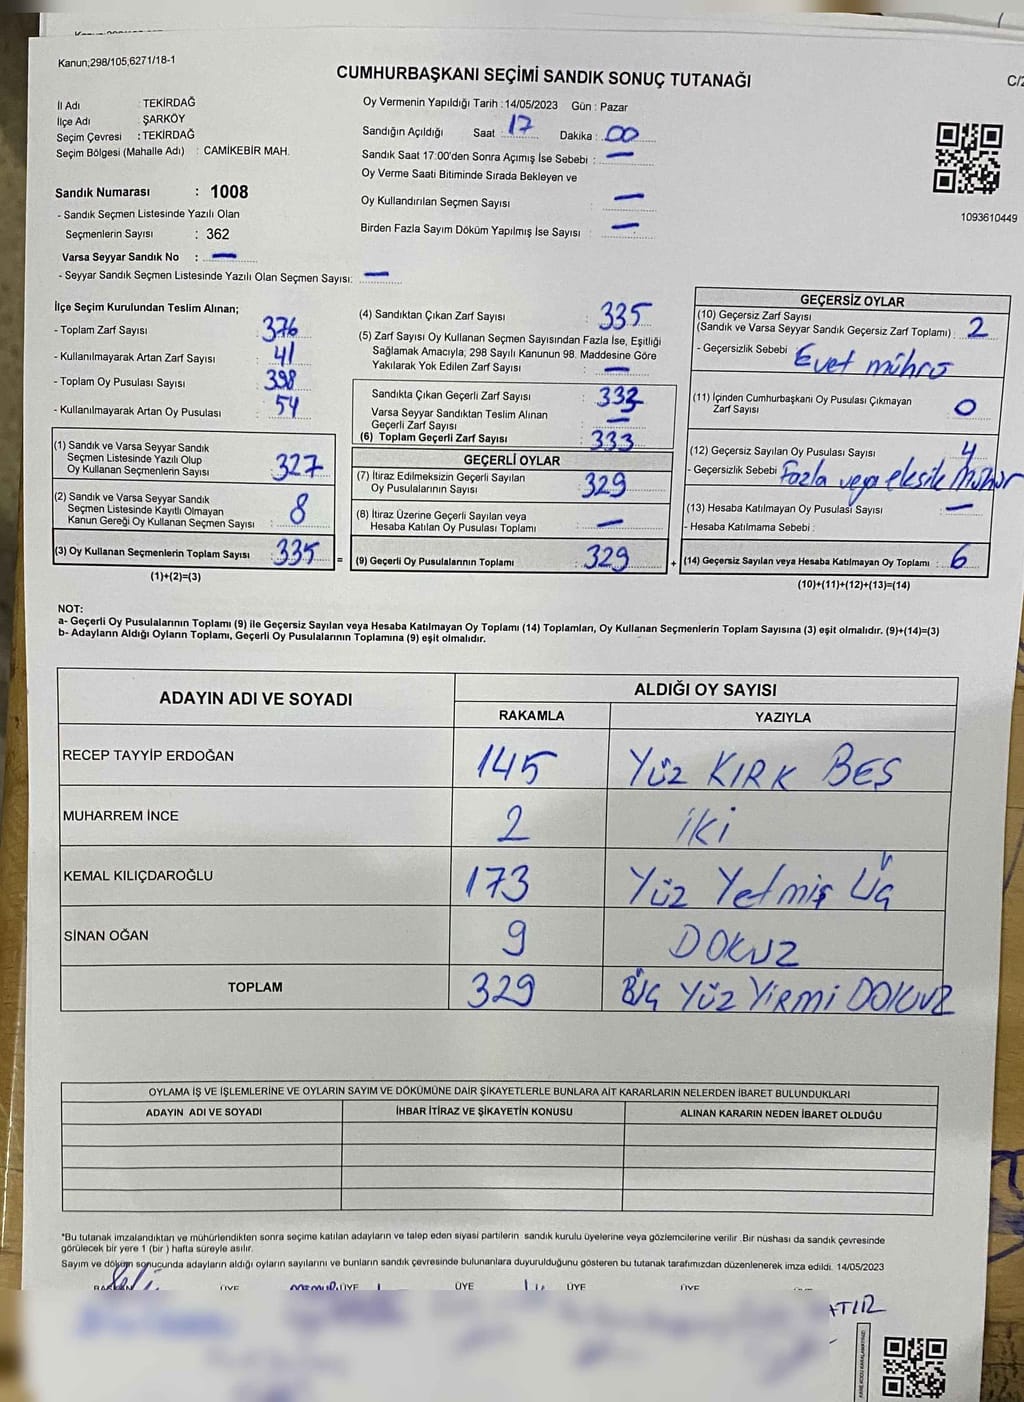 Kanun;298/105,6271/18-1
CUMHURBAŞKANI SEÇİMİ SANDIK SONUÇ TUTANAĞI
İl Adı : TEKİRDAĞ
İlçe Adı : ŞARKÖY
Seçim Çevresi : TEKİRDAĞ
Seçim Bölgesi (Mahalle Adı) : CAMİKEBİR MAH.
Oy Vermenin Yapıldığı Tarih : 14/05/2023 Gün : Pazar
Sandığın Açıldığı Saat : 17 Dakika : 00
Sandık Saat 17:00'den Sonra Açımış İse Sebebi : —
Oy Verme Saati Bitiminde Sırada Bekleyen ve
Oy Kullandırılan Seçmen Sayısı : —
Birden Fazla Sayım Döküm Yapılmış İse Sayısı : —
1093610449
Sandık Numarası : 1008
- Sandık Seçmen Listesinde Yazılı Olan
Seçmenlerin Sayısı : 362
Varsa Seyyar Sandık No : —
- Seyyar Sandık Seçmen Listesinde Yazılı Olan Seçmen Sayısı: —
İlçe Seçim Kurulundan Teslim Alınan;
- Toplam Zarf Sayısı : 376
- Kullanılmayarak Artan Zarf Sayısı : 41
- Toplam Oy Pusulası Sayısı : 398
- Kullanılmayarak Artan Oy Pusulası : 54
(1) Sandık ve Varsa Seyyar Sandık
Seçmen Listesinde Yazılı Olup
Oy Kullanan Seçmenlerin Sayısı : 327
(2) Sandık ve Varsa Seyyar Sandık
Seçmen Listesinde Kayıtlı Olmayan
Kanun Gereği Oy Kullanan Seçmen Sayısı : 8
(3) Oy Kullanan Seçmenlerin Toplam Sayısı : 335 =
(1)+(2)=(3)
(4) Sandıktan Çıkan Zarf Sayısı : 335
(5) Zarf Sayısı Oy Kullanan Seçmen Sayısından Fazla İse, Eşitliği
Sağlamak Amacıyla; 298 Sayılı Kanunun 98. Maddesine Göre
Yakılarak Yok Edilen Zarf Sayısı : —
Sandıkta Çıkan Geçerli Zarf Sayısı : 333
Varsa Seyyar Sandıktan Teslim Alınan
Geçerli Zarf Sayısı : —
(6) Toplam Geçerli Zarf Sayısı : 333
GEÇERLİ OYLAR
(7) İtiraz Edilmeksizin Geçerli Sayılan
Oy Pusulalarının Sayısı : 329
(8) İtiraz Üzerine Geçerli Sayılan veya
Hesaba Katılan Oy Pusulası Toplamı : —
(9) Geçerli Oy Pusulalarının Toplamı : 329 +
GEÇERSİZ OYLAR
(10) Geçersiz Zarf Sayısı
(Sandık ve Varsa Seyyar Sandık Geçersiz Zarf Toplamı) : 2
- Geçersizlik Sebebi : Evet mührü
(11) İçinden Cumhurbaşkanı Oy Pusulası Çıkmayan
Zarf Sayısı : 0
(12) Geçersiz Sayılan Oy Pusulası Sayısı : 4
- Geçersizlik Sebebi : Fazla veya eksik Mühür
(13) Hesaba Katılmayan Oy Pusulası Sayısı : —
- Hesaba Katılmama Sebebi :
(14) Geçersiz Sayılan veya Hesaba Katılmayan Oy Toplamı : 6
(10)+(11)+(12)+(13)=(14)
NOT:
a- Geçerli Oy Pusulalarının Toplamı (9) ile Geçersiz Sayılan veya Hesaba Katılmayan Oy Toplamı (14) Toplamları, Oy Kullanan Seçmenlerin Toplam Sayısına (3) eşit olmalıdır. (9)+(14)=(3)
b- Adayların Aldığı Oyların Toplamı, Geçerli Oy Pusulalarının Toplamına (9) eşit olmalıdır.
ADAYIN ADI VE SOYADI ALDIĞI OY SAYISI
RAKAMLA YAZIYLA
RECEP TAYYİP ERDOĞAN 145 Yüz KIRK BEŞ
MUHARREM İNCE 2 iKi
KEMAL KILIÇDAROĞLU 173 Yüz Yetmiş Üç
SİNAN OĞAN 9 DOKUZ
TOPLAM 329 Üç Yüz YiRMi DOKUZ
OYLAMA İŞ VE İŞLEMLERİNE VE OYLARIN SAYIM VE DÖKÜMÜNE DAİR ŞİKAYETLERLE BUNLARA AİT KARARLARIN NELERDEN İBARET BULUNDUKLARI
ADAYIN ADI VE SOYADI İHBAR İTİRAZ VE ŞİKAYETİN KONUSU ALINAN KARARIN NEDEN İBARET OLDUĞU
*Bu tutanak imzalandıktan ve mühürlendikten sonra seçime katılan adayların ve talep eden siyasi partilerin sandık kurulu üyelerine veya gözlemcilerine verilir .Bir nüshası da sandık çevresinde
görülecek bir yere 1 (bir ) hafta süreyle asılır.
Sayım ve döküm sonucunda adayların aldığı oyların sayılarını ve bunların sandık çevresinde bulunanlara duyurulduğunu gösteren bu tutanak tarafımızdan düzenlenerek imza edildi. 14/05/2023
ÜYE ÜYE ÜYE ÜYE ÜYE